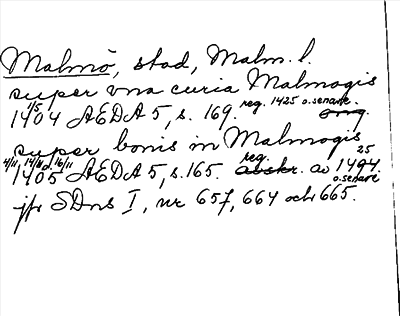 Malmö, stad, Malm. l.
super vna curia Malmogis
1/5 1404 ÆDA 5, s. 169. reg. 1425 o. senare. orig.
super bonis in Malmogis
4/11, 14/11 o. 16/11 1405 ÆDA 5, s. 165. reg. avskr. av 1494. 25 o. senare
jfr SDns I, nr 657, 664 och 665.